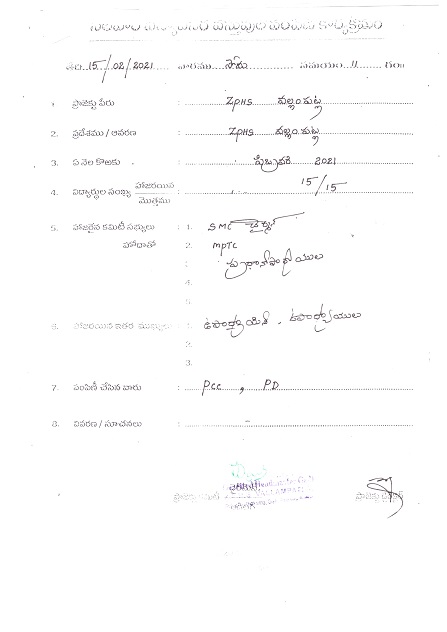 తేది 15/02/2021 వారము సోమ సమయం 11 గం॥
1 ప్రాజెక్టు పేరు : ZPHS వల్లంపట్ల
2. ప్రదేశము / ఆవరణ : ZPHS వల్లంపట్ల
3. ఏ నెల కొఱకు : ఫిబ్రవరి 2021
4. విద్యార్థుల సంఖ్య హాజరయిన / మొత్తము : 15/15
5. హాజరైన కమిటీ సభ్యులు : 1. SMC చైర్మన్
హోదాతో 2. MPTC
: ప్రధానోపాధ్యాయులు
4.
5.
6. హాజరయిన ఇతర ముఖ్యులు : 1. ఉపాధ్యాయిని, ఉపాధ్యాయులు
2.
3.
7. పంపిణీ చేసిన వారు : PCC, PD
8. వివరణ / సూచనలు :
ప్రాజెక్టు కమిటీ ప్రాజెక్టు డైరెక్టర్